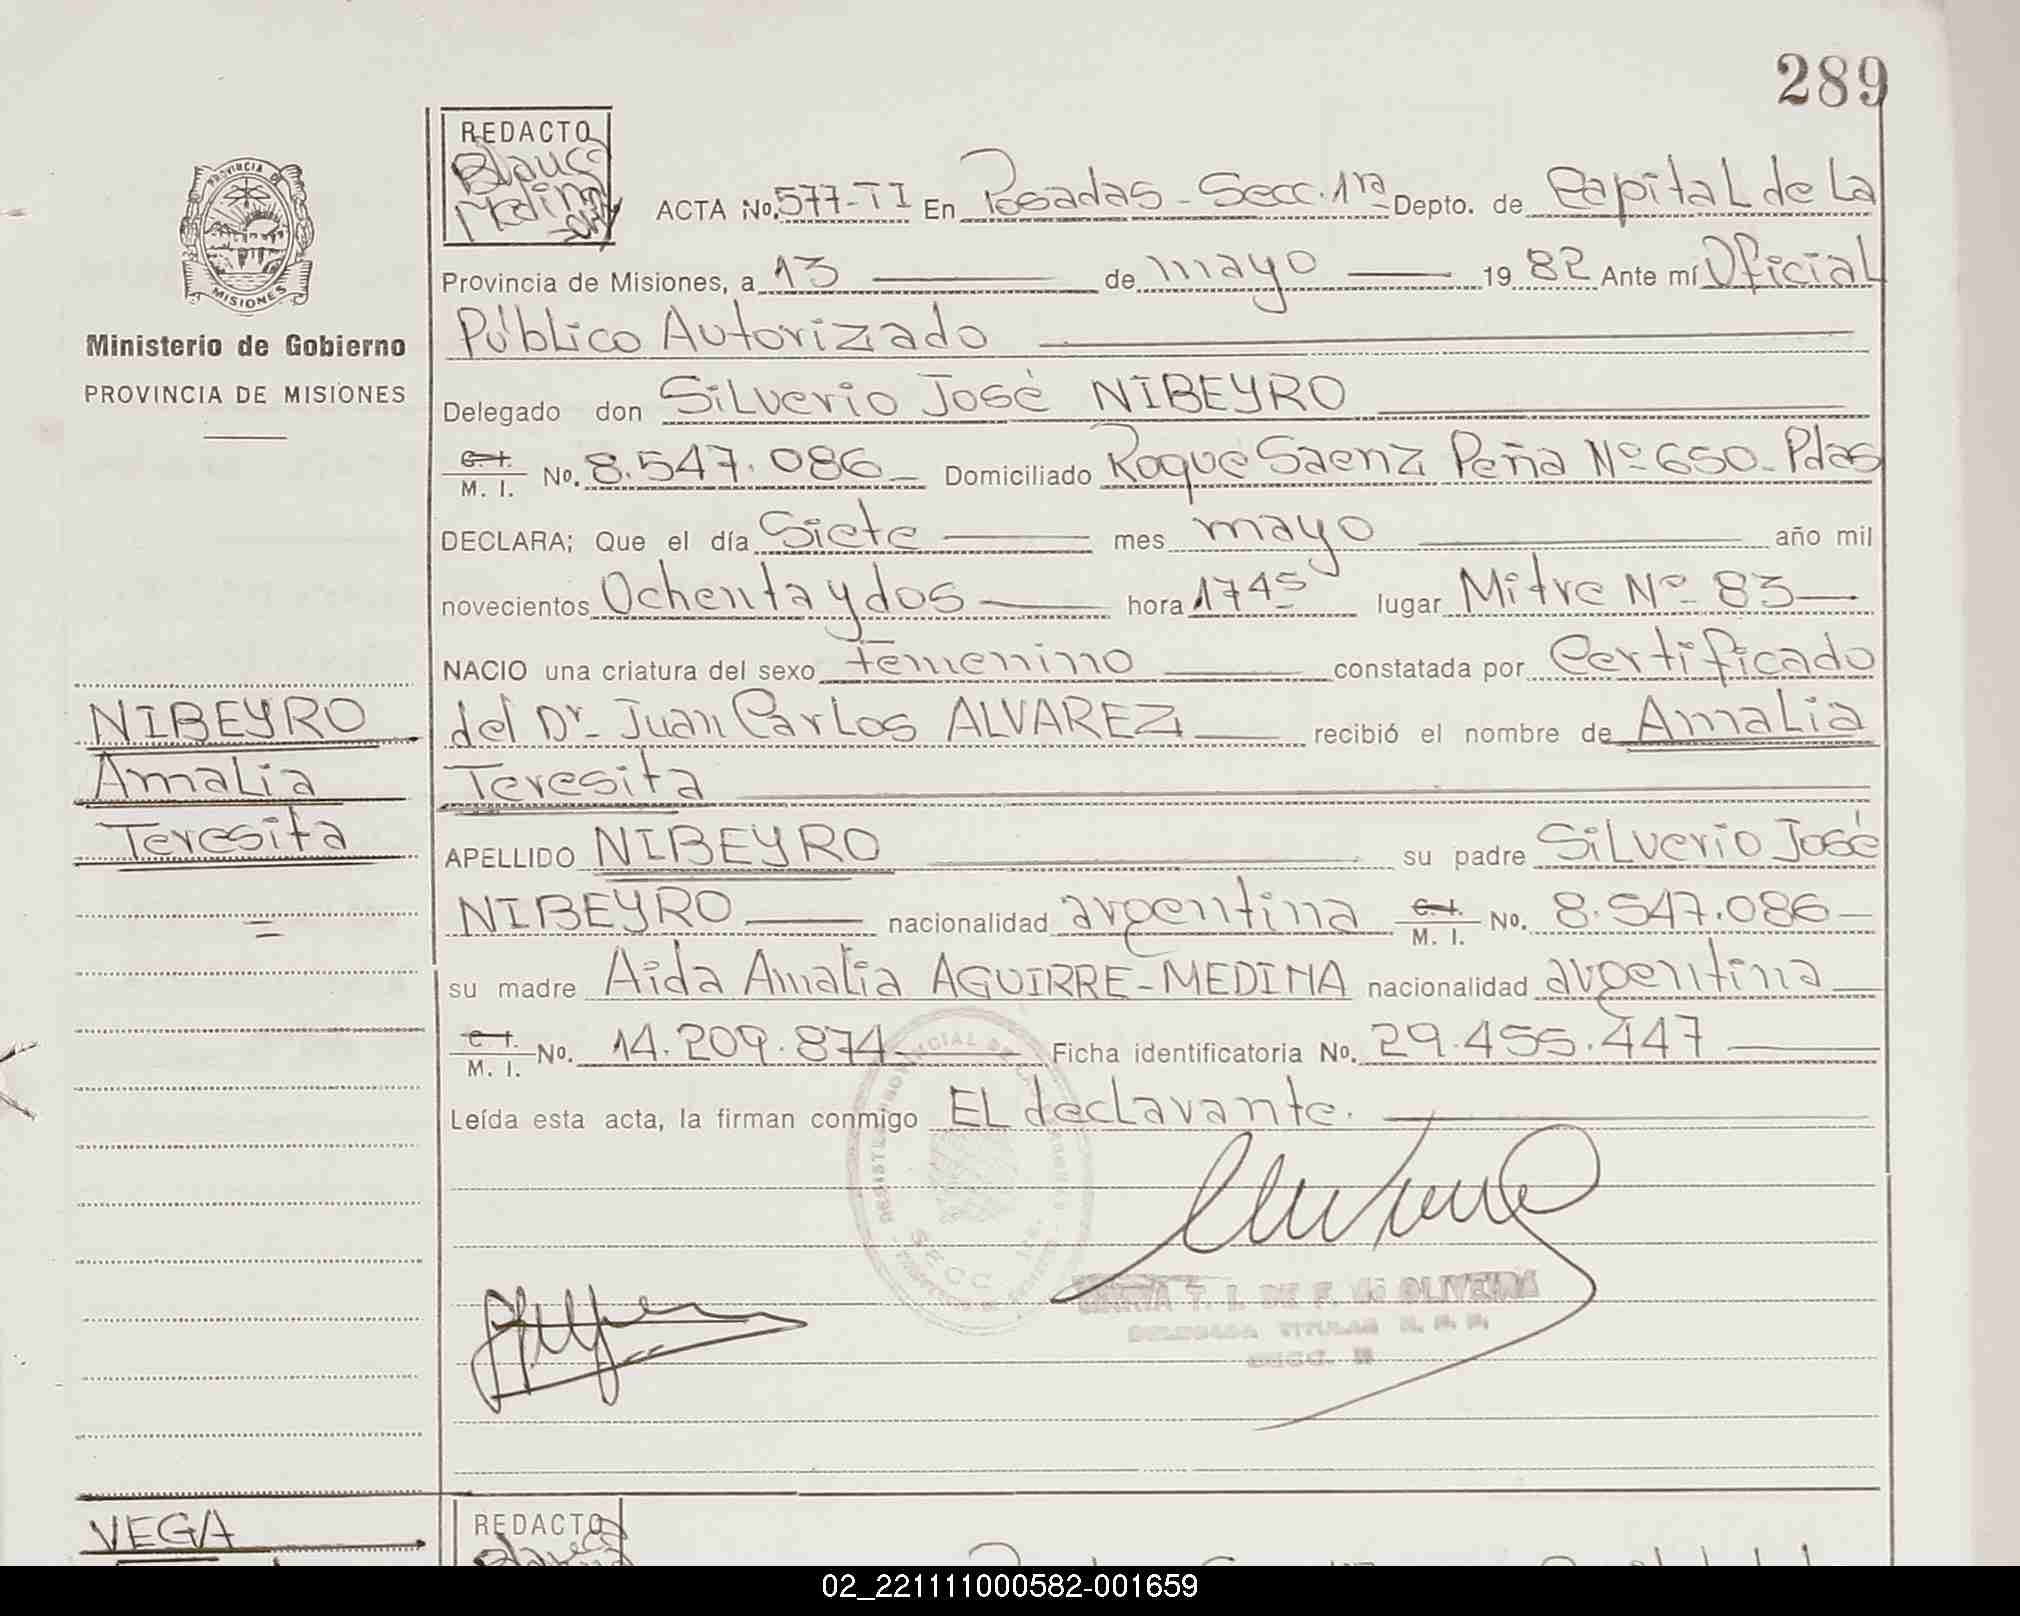 289
REDACTO
Blanca
Medina
ACTA No. 577-TI En Posadas - Secc. 1ra Depto. de Capital de La
Provincia de Misiones, a 13 de mayo 19 82 Ante mí Oficial
Público Autorizado
Delegado don Silverio José NIBEYRO
C. I. M. I. No. 8.547.086 Domiciliado Roque Saenz Peña Nº 650 - Pdas
DECLARA; Que el día Siete mes mayo año mil
novecientos Ochenta y dos hora 1745 lugar Mitre Nº 83
NACIO una criatura del sexo femenino constatada por Certificado
del Dr. Juan Carlos ALVAREZ recibió el nombre de Amalia
Teresita
APELLIDO NIBEYRO su padre Silverio José
NIBEYRO nacionalidad argentina C. I. M. I. No. 8.547.086
su madre Aida Amalia AGUIRRE-MEDINA nacionalidad argentina
C. I. M. I. No. 14.209.874 Ficha identificatoria No. 29.455.447
Leída esta acta, la firman conmigo EL declarante.
PROVINCIA DE
MISIONES
Ministerio de Gobierno
PROVINCIA DE MISIONES
NIBEYRO
Amalia
Teresita
SECC 1ra.
T. I. DE F. DE OLIVEIRA
TITULAR
VEGA
REDACTO
02_221111000582-001659